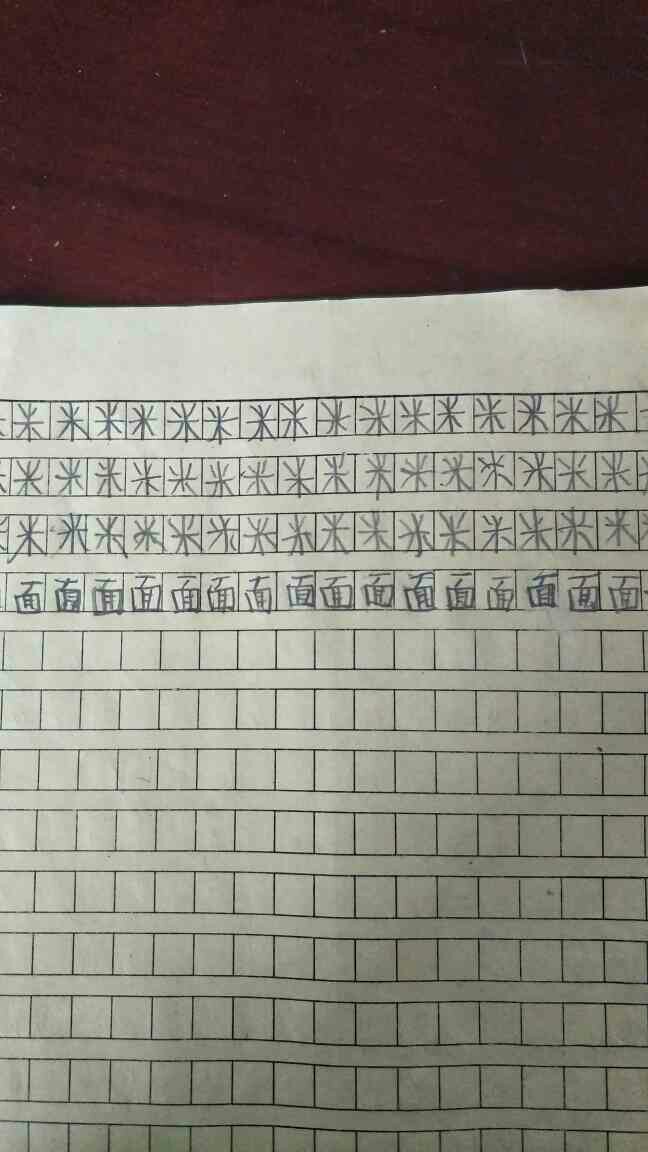 米米米米米米米米米米米米米米米米
米米米米米米米米米米米米米米米米
米米米米米米米米米米米米米米米米
面面面面面面面面面面面面面面面面